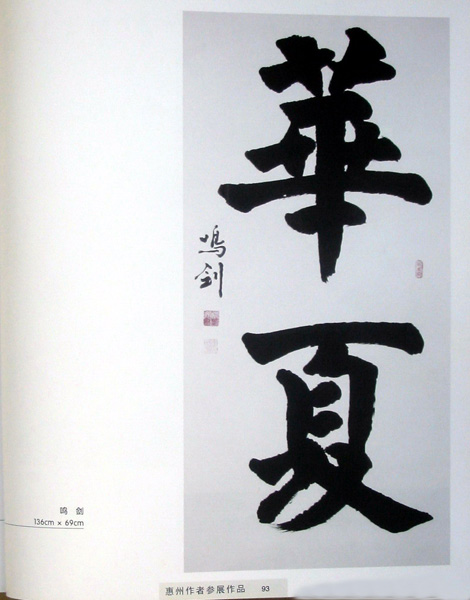 華夏
鸣剑
鸣 剑
136cm × 69cm
惠州作者参展作品 93